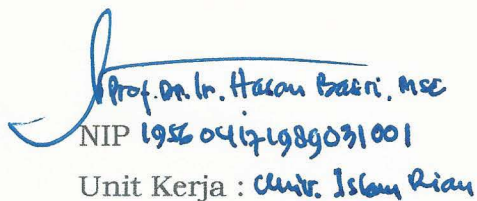 Prof. Dr. Ir. Hasan Basri, MSc
NIP 195604171989031001
Unit Kerja : Univ. Islam Riau